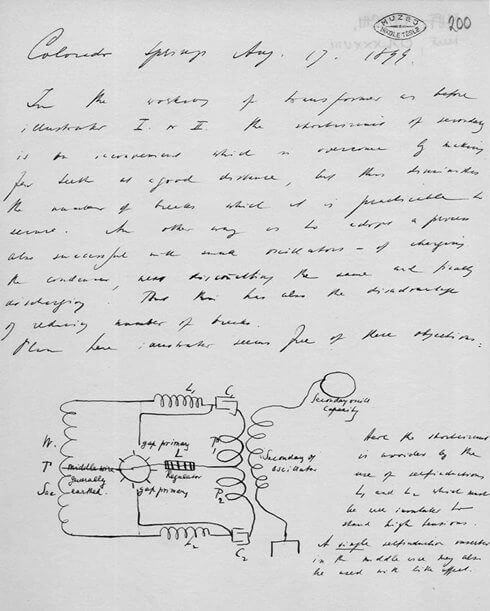 MUZEJ
NIKOLE TESLE
200
Colorado Springs Aug. 17. 1899.
In the working of transformer as before
illustrated I. or II. the shortcircuit of secondary
is an inconvenience which is overcome by making
few teeth at a good distance, but this diminishes
the number of breaks which it is practicable to
secure. An other way is to adopt a process
also successful with small oscillators – of charging
the condenser, disconnecting the same and finally
discharging. But this has also the disadvantage
of reducing number of breaks.
Plan here illustrated seems free of these objections:
L1
C1
Secondary coil
Capacity
W.
T
Sec
gap primary
middle wire
generally
earthed
L
Regulator
gap primary
P1
P2
Secondary of
oscillator
L2
C2
Here the shortcircuit
is avoided by the
use of selfinductions
L1 and L2 which must
be well insulated to
stand high tensions.
A single selfinduction inserted
in the middle wire may also
be used with like effect.